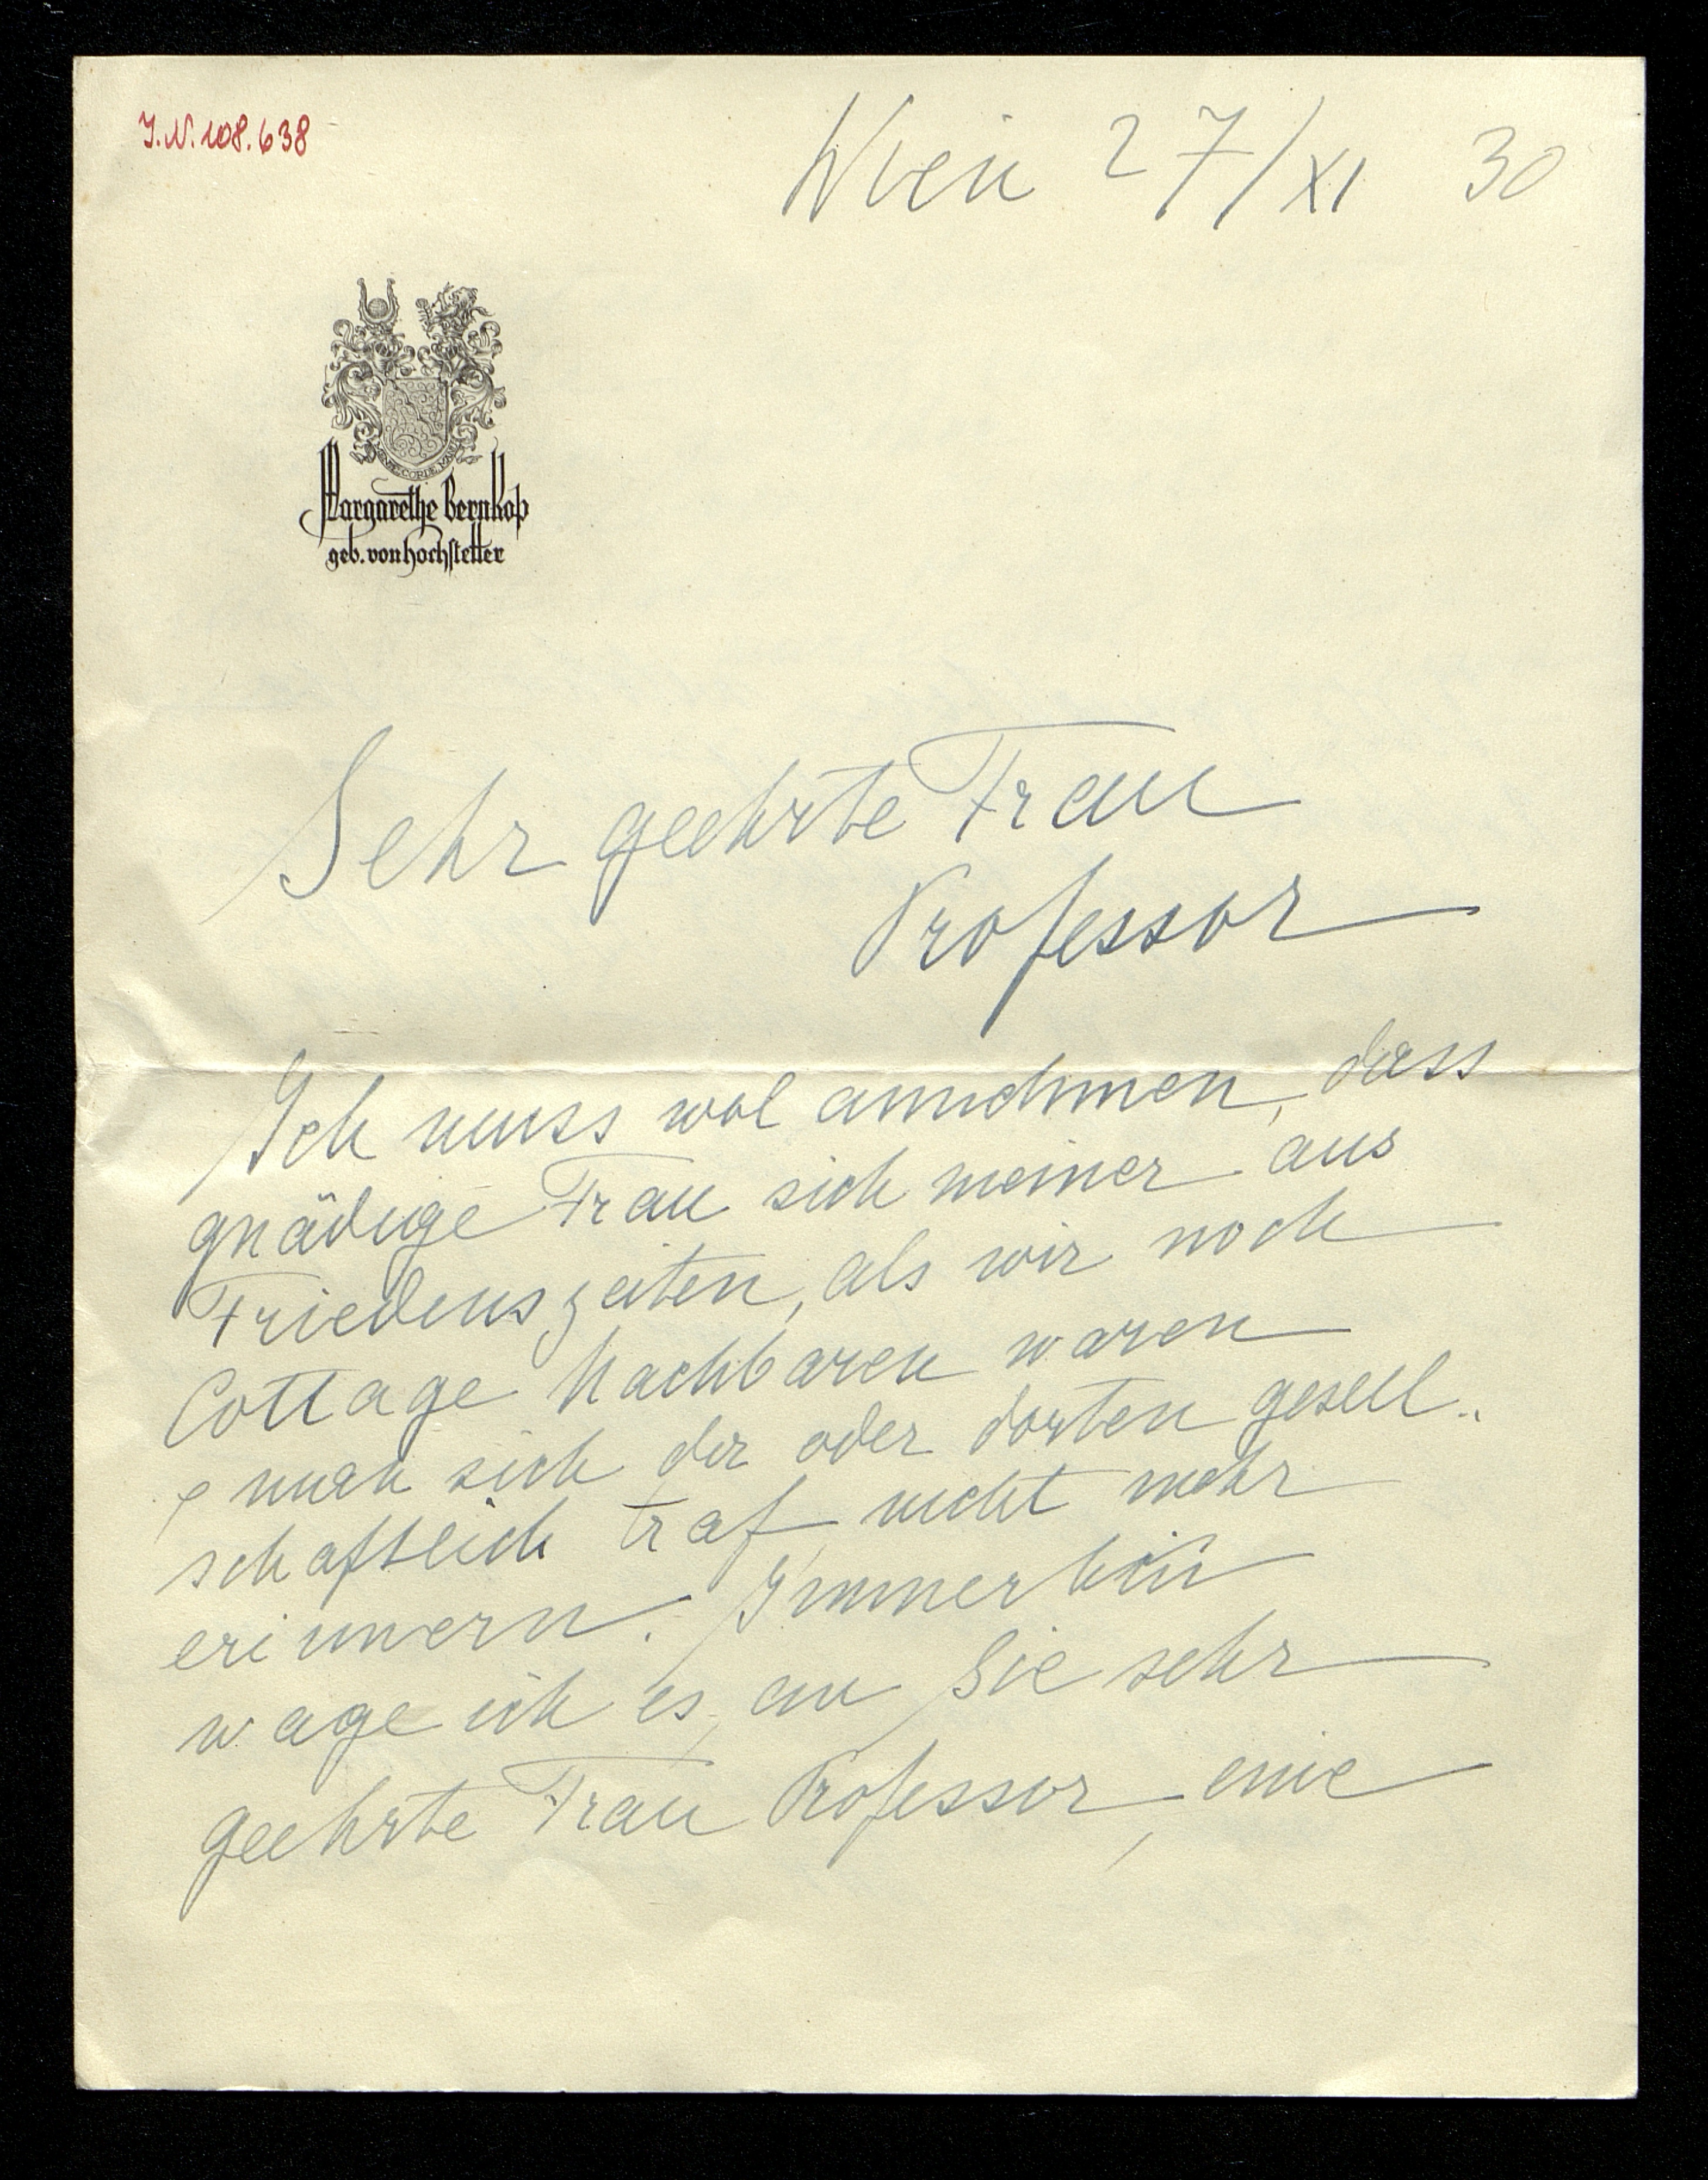 J.N. 108.638
Wien 27/XI 30
MENTE CORDE MANU
Margarethe Bernkop
geb. von Hochstetter
Sehr geehrte Frau
Professor
Ich muss wol annehmen, dass
gnädige Frau sich meiner aus
Friedenszeiten, als wir noch
Cottage Nachbaren waren
& man sich da oder dorten gesell-
schaftlich traf, nicht mehr
erinnern. Immerhin
wage ich es, an Sie sehr
geehrte Frau Professor, eine